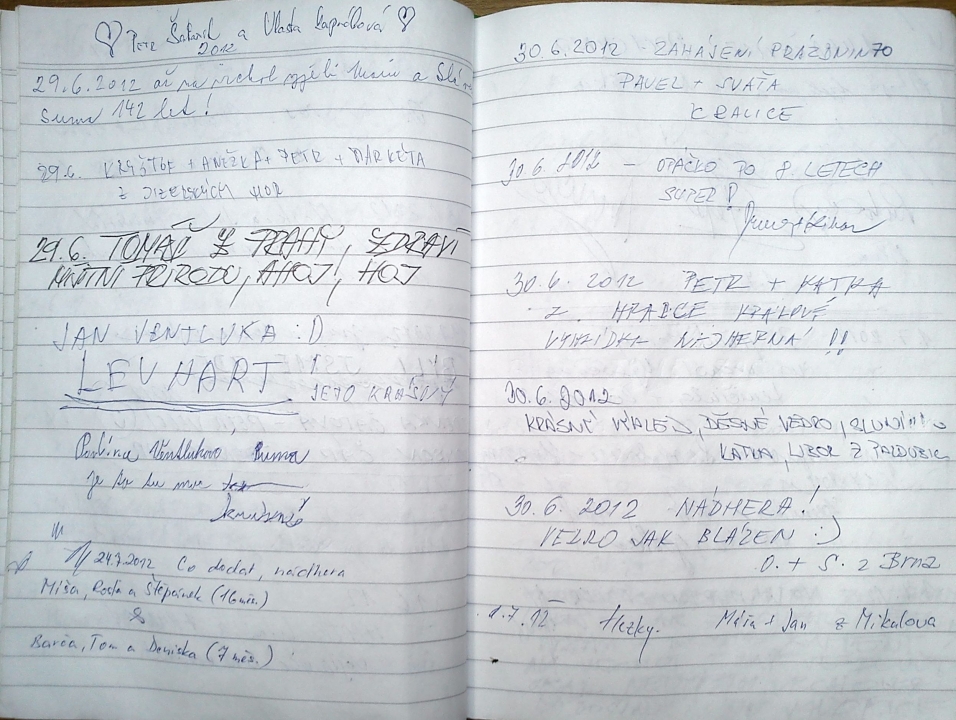 ♡ Petr Šafařík a Vlasta ♡
2012
29.6.2012 až na vrchol vyjeli a
Suma 142 let!
29.6. KRYŠTOF + ANEŽKA + PETR + MARKÉTA
Z JIZERSKÝCH HOR
29.6. TOMÁŠ Z PRAHY, ZDRAVÍ
MÍSTNÍ PŘÍRODU, AHOJ, HOJ
JAN VENTLUKA :D
LEVHART !
JE TO KRÁSNÝ
Pavlína
je to tu moc
24.7.2012 Co dodat, nádhera
Míša, Rosťa a Štěpánek (16 měs.)
&
Barča, Tom a Deniska (7 měs.)
30.6.2012 - ZAHÁJENÍ PRÁZDNIN
PAVEL + SVAŤA
KRALICE
30.6.2012 - OPÁČKO PO 8. LETECH
SUPER!
30.6.2012 PETR + KATKA
Z HRADCE KRÁLOVÉ
VYHLÍDKA NÁDHERNÁ !!
30.6.2012
KRÁSNÉ VÝHLEDY, DĚSNÉ VEDRO,
KATKA, LIBOR Z PARDUBIC
30.6.2012 NÁDHERA!
VEDRO JAK BLÁZEN :)
O. + S. z Brna
1.7.12 Hezky. Míša + Jan z Mikulova